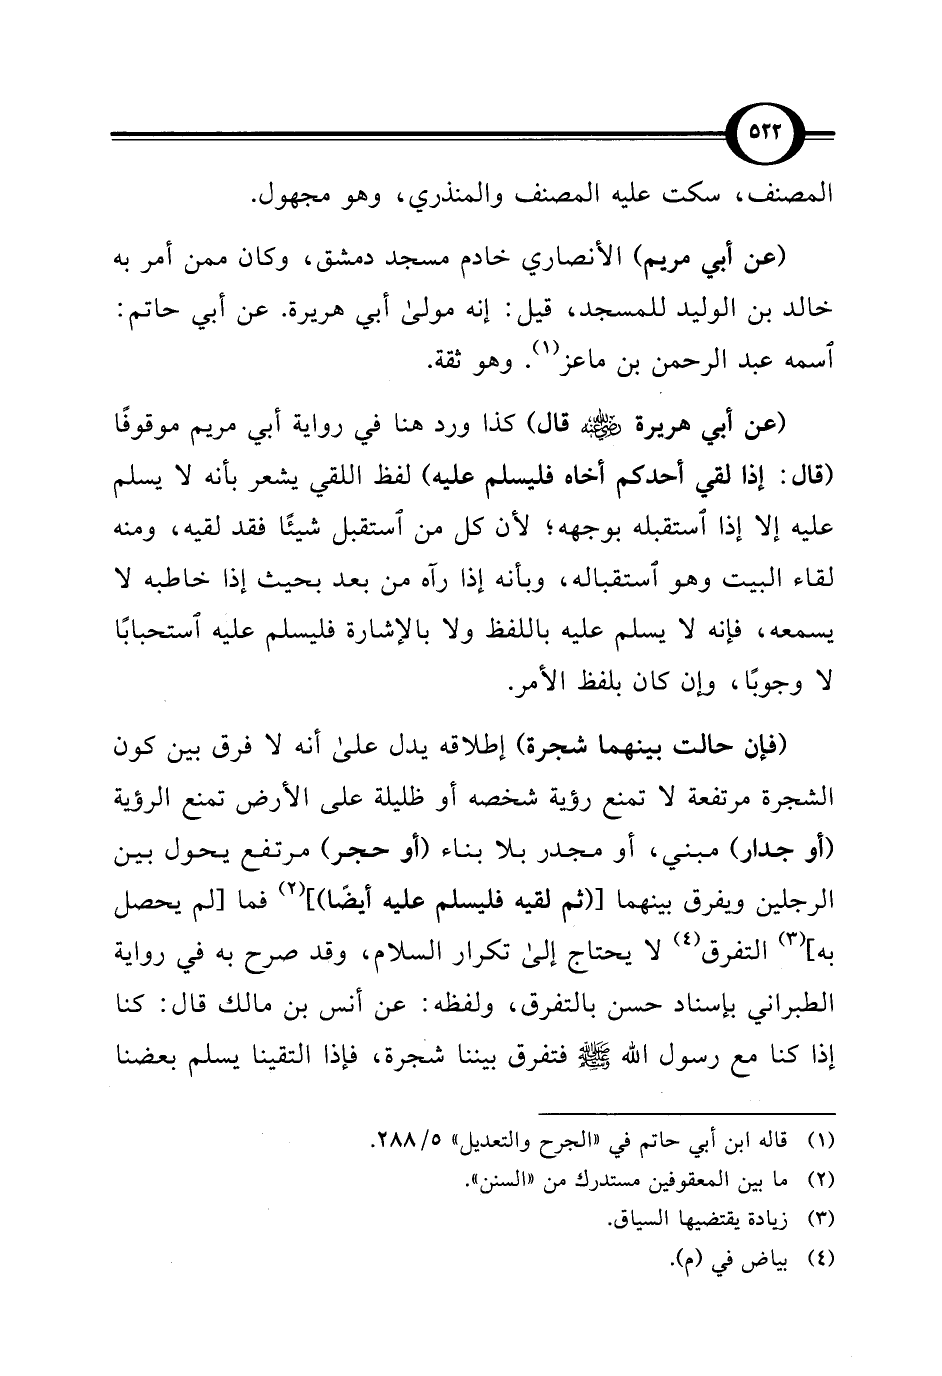 ٥٢٢
المصنف، سكت عليه المصنف والمنذري، وهو مجهول.
(عن أبي مريم) الأنصاري خادم مسجد دمشق، وكان ممن أمر به
خالد بن الوليد للمسجد، قيل: إنه مولىٰ أبي هريرة. عن أبي حاتم:
ٱسمه عبد الرحمن بن ماعز(١). وهو ثقة.
(عن أبي هريرة رضي الله عنه قال) كذا ورد هنا في رواية أبي مريم موقوفًا
(قال: إذا لقي أحدكم أخاه فليسلم عليه) لفظ اللقي يشعر بأنه لا يسلم
عليه إلا إذا ٱستقبله بوجهه؛ لأن كل من ٱستقبل شيئًا فقد لقيه، ومنه
لقاء البيت وهو ٱستقباله، وبأنه إذا رآه من بعد بحيث إذا خاطبه لا
يسمعه، فإنه لا يسلم عليه باللفظ ولا بالإشارة فليسلم عليه ٱستحبابًا
لا وجوبًا، وإن كان بلفظ الأمر.
(فإن حالت بينهما شجرة) إطلاقه يدل علىٰ أنه لا فرق بين كون
الشجرة مرتفعة لا تمنع رؤية شخصه أو ظليلة على الأرض تمنع الرؤية
(أو جدار) مبني، أو مجدر بلا بناء (أو حجر) مرتفع يحول بين
الرجلين ويفرق بينهما [(ثم لقيه فليسلم عليه أيضًا)](٢) فما [لم يحصل
به](٣) التفرق(٤) لا يحتاج إلىٰ تكرار السلام، وقد صرح به في رواية
الطبراني بإسناد حسن بالتفرق، ولفظه: عن أنس بن مالك قال: كنا
إذا كنا مع رسول الله ﷺ فتفرق بيننا شجرة، فإذا التقينا يسلم بعضنا
(١) قاله ابن أبي حاتم في «الجرح والتعديل» ٥/ ٢٨٨.
(٢) ما بين المعقوفين مستدرك من «السنن».
(٣) زيادة يقتضيها السياق.
(٤) بياض في (م).